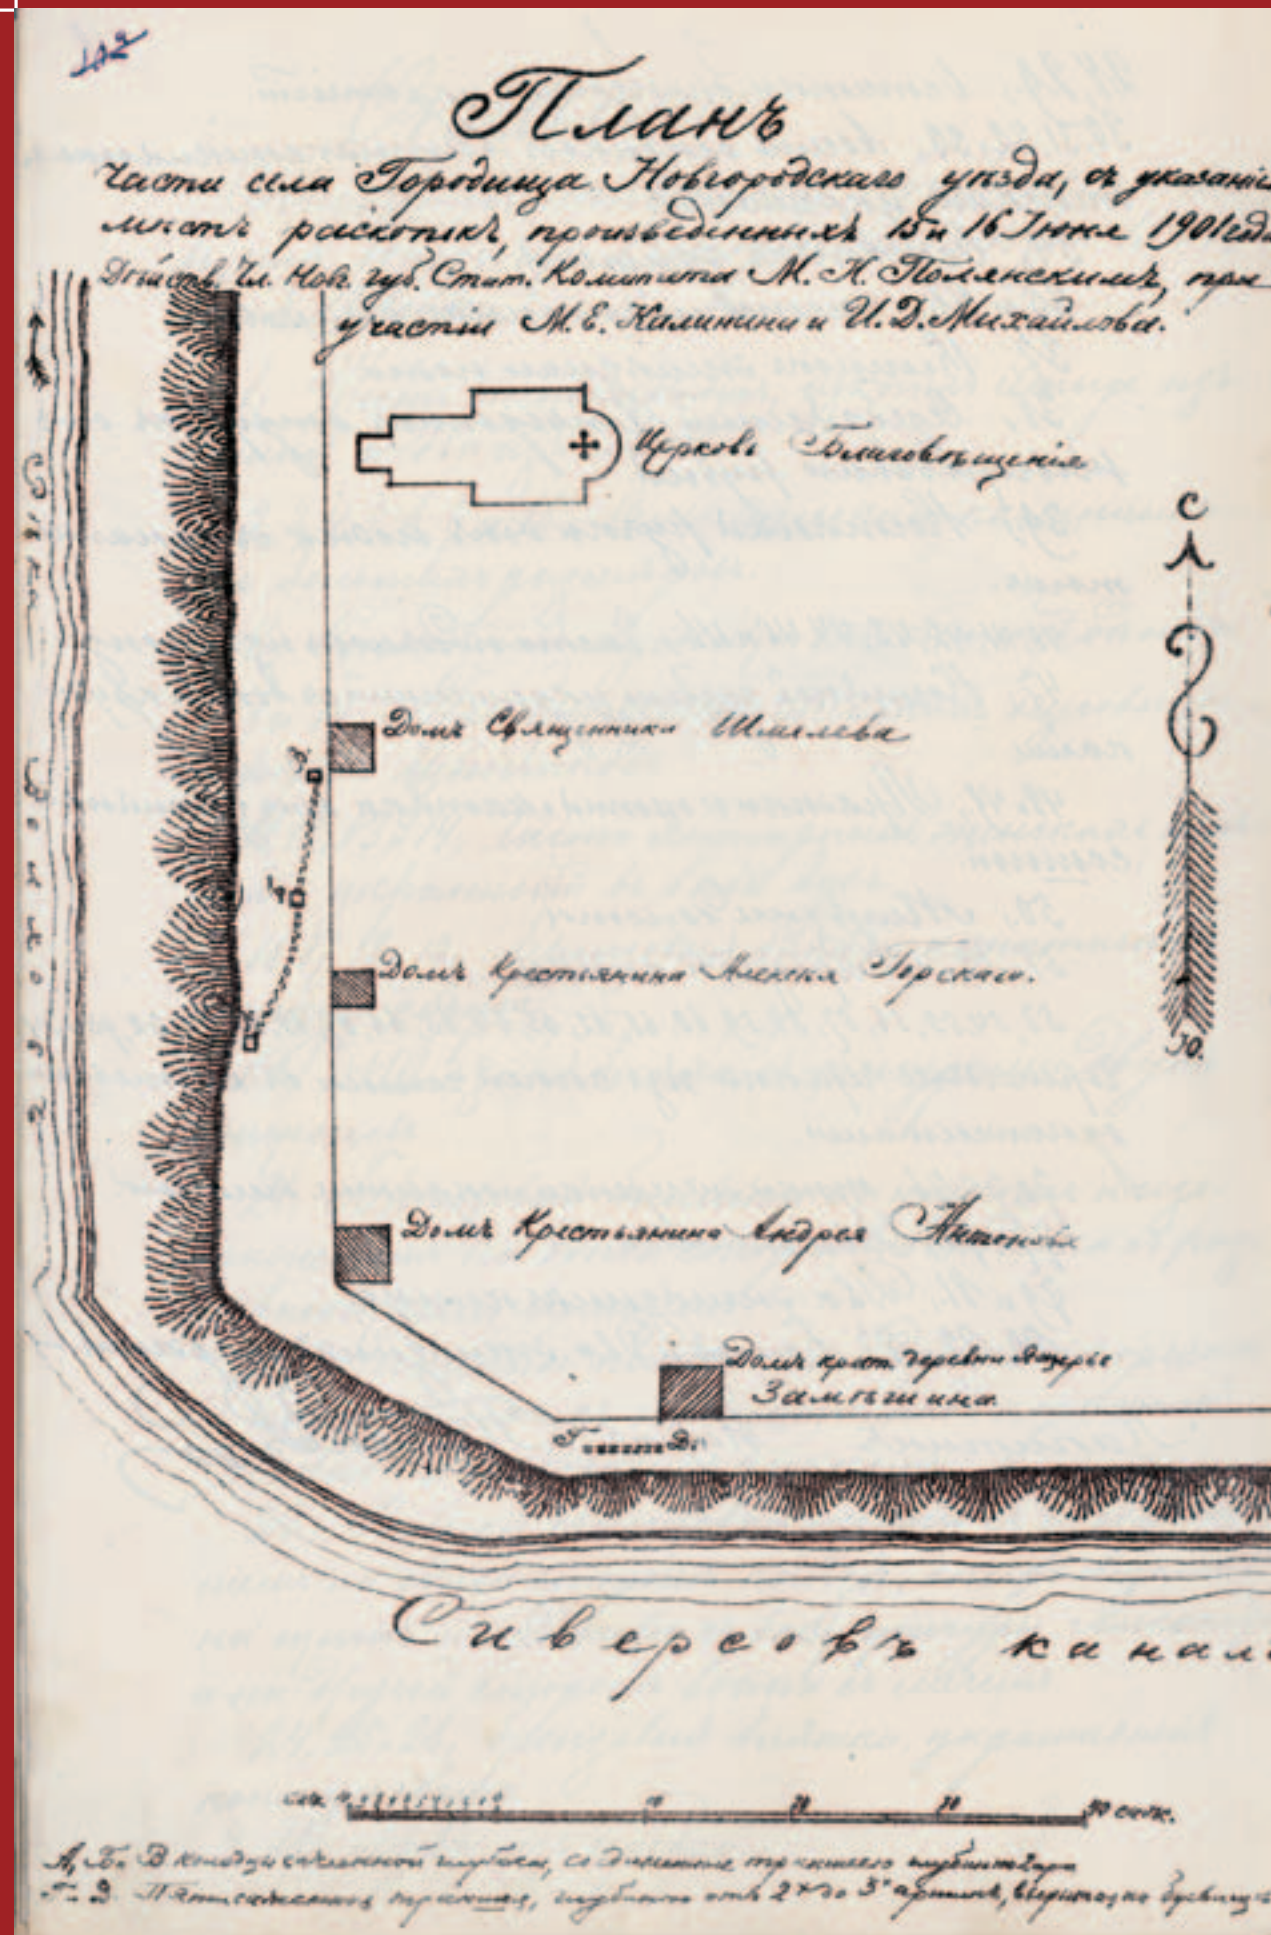 102
Планъ
части села Городища Новгородскаго уѣзда, съ указаніе
мѣстъ раскопокъ, произведенныхъ 15 и 16 Іюня 1901 года
Дѣйств. Чл. Новг. губ. Стат. Комитета М. Н. Полянскимъ, при
участіи М. Е. Калинина и И. Д. Михайлова.
Церковь Благовѣщенія
С
Домъ Священника Шмелева
В.
Б.
Домъ Крестьянина Алексѣя Горскаго.
Ю.
Домъ Крестьянина Андрея Антонова
Домъ крест. деревни
Замѣшина
Г. Д.
Сиверсовъ канал
саж. 10 20 30 40 саж.
А, Б, В саженной глубины, соединенные траншеею глубиною
Г-Д. Пятисаженная траншея, глубиною отъ 2х до 3х аршинъ,